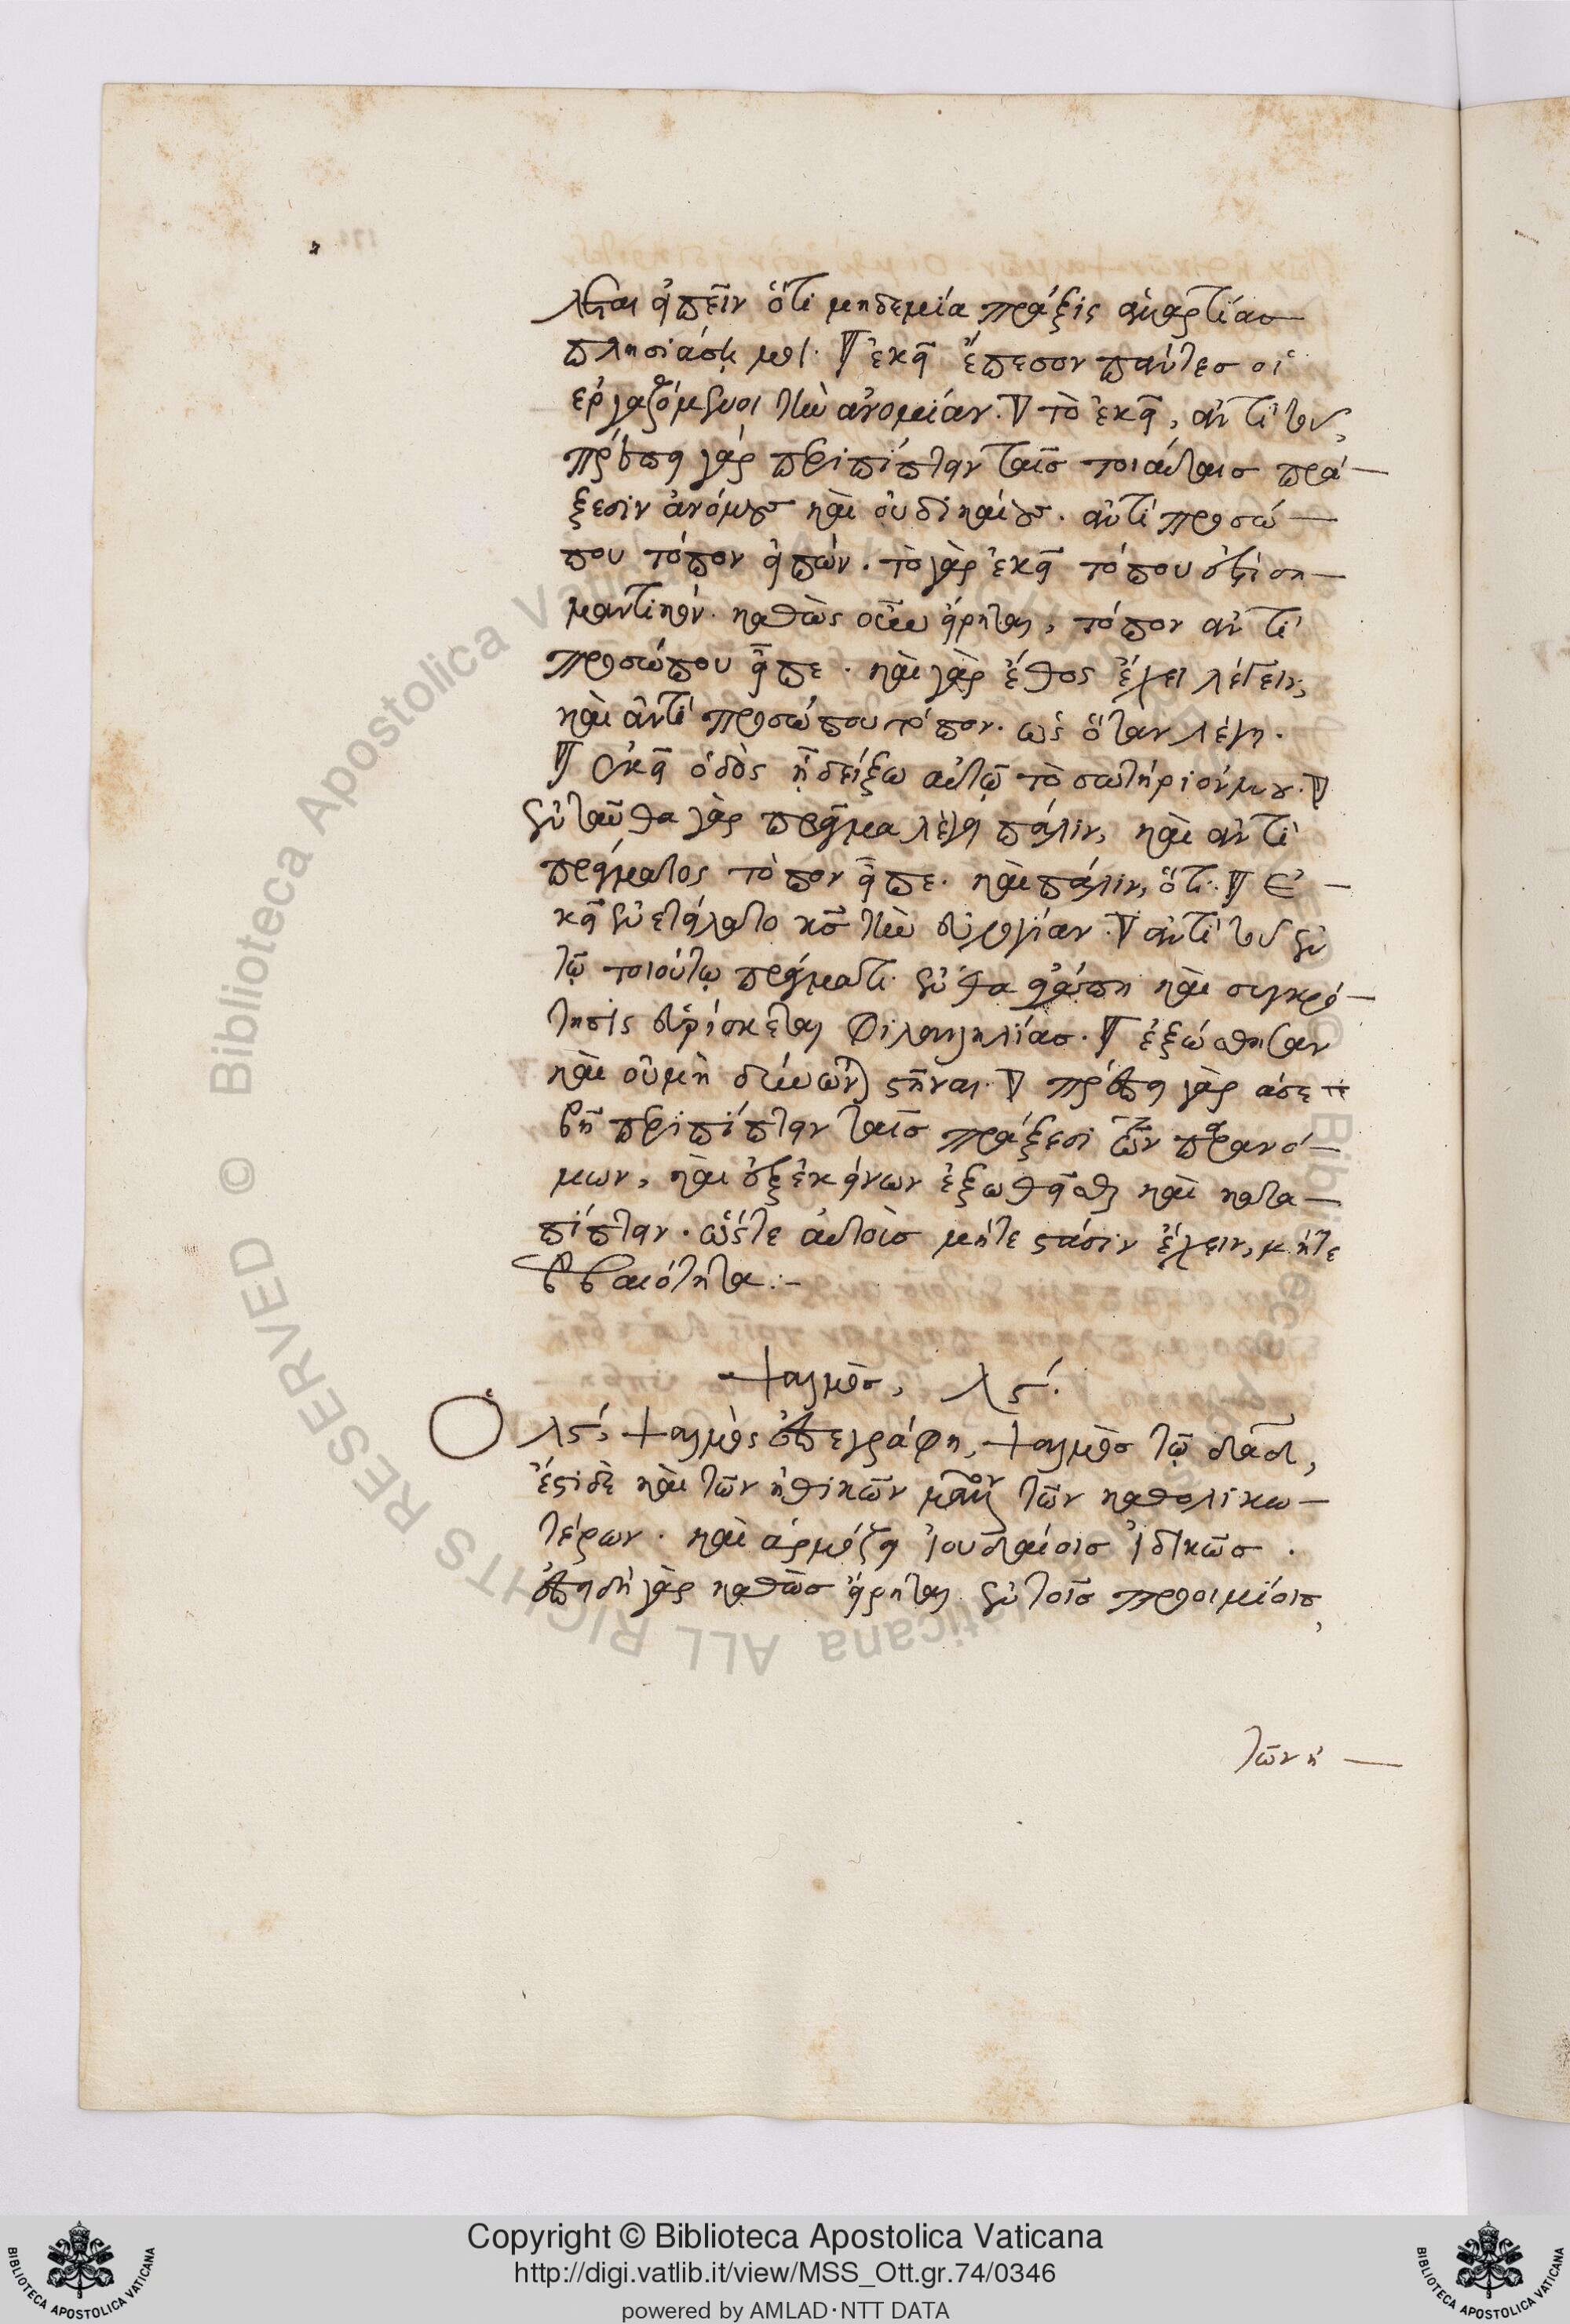 λεται εἰπεῖν ὅτι μηδεμία πράξις ἁμαρτίας
πλησιάση μοι. ἐκεῖ ἔπεσον πάντες οἱ
ἐργαζόμενοι τὴν ἀνομίαν. τὸ ἐκεῖ, ἀντὶ τοῦ,
πρέπει γὰρ περιπίπτειν ταῖς τοιαύταις πρά-
ξεσιν ἀνόμους καὶ οὐ δικαίους. ἀντὶ προσώ-
που τόπον εἰπών. τὸ γὰρ ἐκεῖ τόπου ἐστὶ ση-
μαντικόν. καθὼς οὖν εἴρηται, τόπον ἀντὶ
προσώπου εἶπε. καὶ γὰρ ἔθος ἔχει λέγειν,
καὶ ἀντὶ προσώπου τόπον. ὡς ὅταν λέγη.
ἐκεῖ ὁδὸς ᾗ δείξω αὐτῷ τὸ σωτήριόν μου.
ἐνταῦθα γὰρ πρᾶγμα λέγει πάλιν, καὶ ἀντὶ
πράγματος τόπον εἶπε. καὶ πάλιν, ὅτι. Ἐ-
κεῖ ἐνετείλατο κς τὴν εὐλογίαν. ἀντὶ τοῦ ἐν
τῷ τοιούτῳ πράγματι. ἔνθα ἀγάπη καὶ συγκρό-
τησις εὑρίσκεται φιλαλληλίας. ἐξώσθησαν
καὶ οὐ μὴ δύνωνται στῆναι. πρέπει γὰρ ἀσε
βῆ περιπίπτειν ταῖς πράξεσι τῶν παρανό-
μων, καὶ ἐξ ἐκείνων ἐξωθεῖσθαι καὶ κατα-
πίπτειν. ὥστε αὐτοῖς μήτε στάσιν ἔχειν, μήτε
βεβαιότητα:-
ψαλμὸς, λϛ´.
Ὁ λϛ´, ψαλμὸς ἐπεγράφη, ψαλμὸς τῷ δαδ,
ἔστι δὲ καὶ τῶν ἠθικῶν μᾶλλον τῶν καθολικω-
τέρων. καὶ ἁρμόζει ἰουδαίοις ἰδικῶς.
ἐπειδὴ γὰρ καθὼς εἴρηται ἐν τοῖς προοιμίοις,
τῶν η-
Copyright © Biblioteca Apostolica Vaticana
http://digi.vatlib.it/view/MSS_Ott.gr.74/0346
powered by AMLAD·NTT DATA
BIBLIOTECA APOSTOLICA VATICANA
BIBLIOTECA APOSTOLICA VATICANA